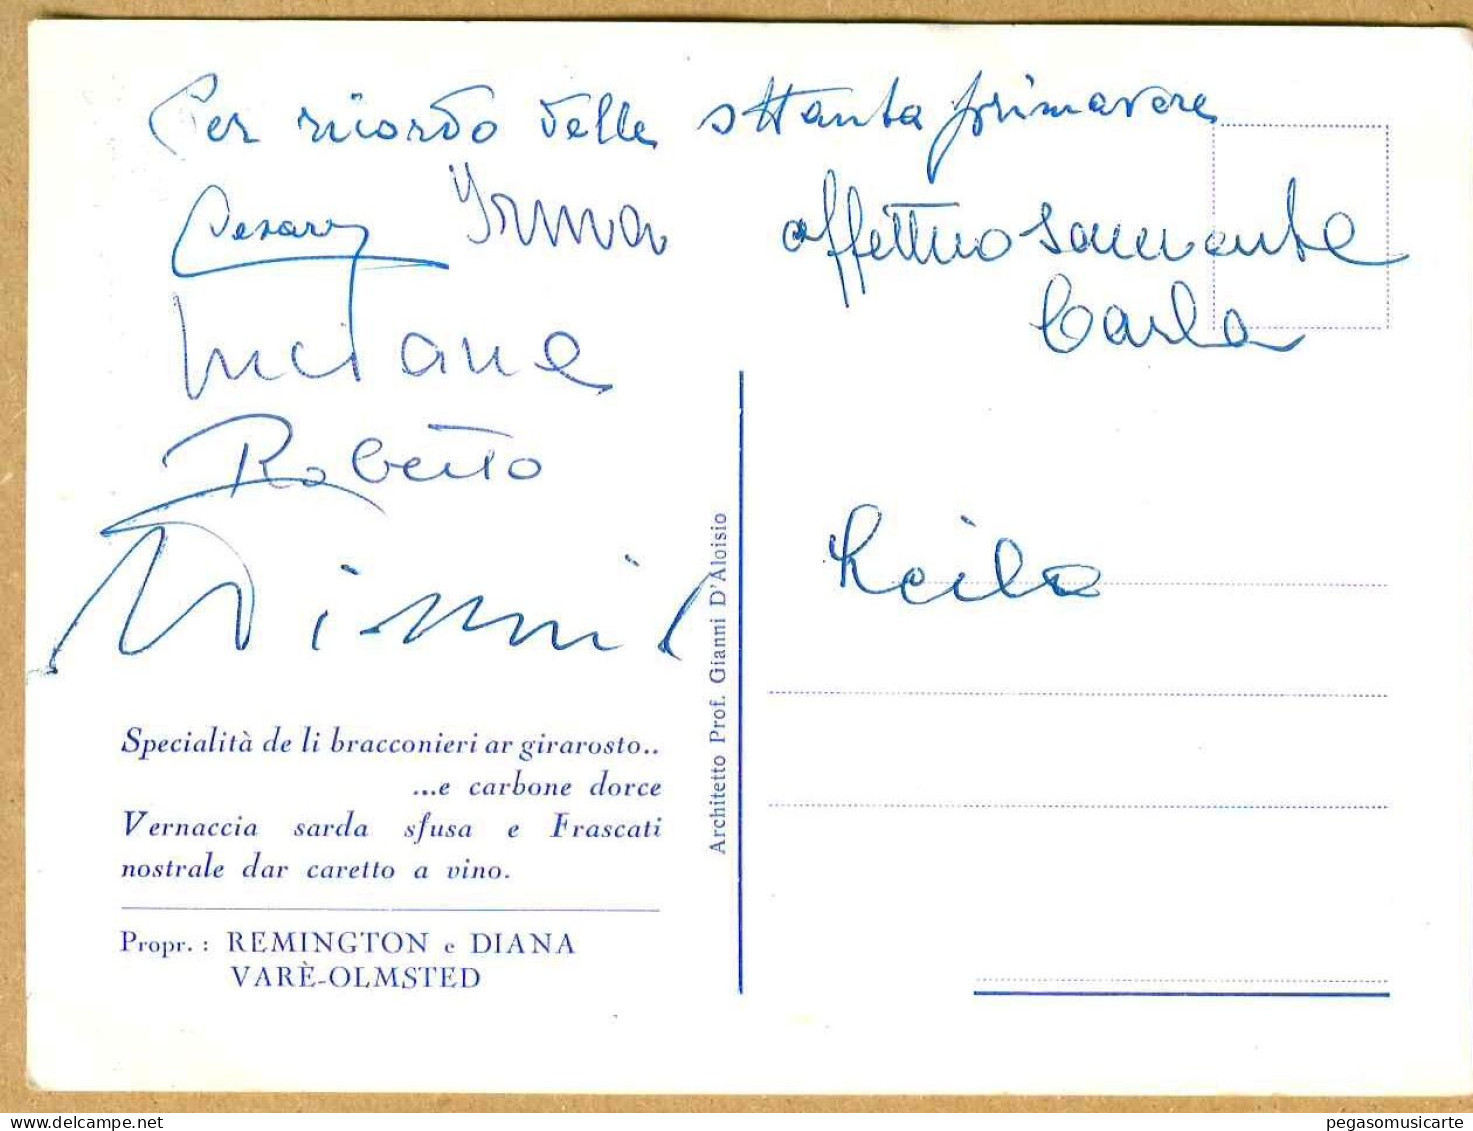 Per ricordo delle ottanta primavere
Cesare Irma
affettuosamente
Carla
Luciana
Roberto
Leila
Specialità de li bracconieri ar girarosto..
...e carbone dorce
Vernaccia sarda sfusa e Frascati
nostrale dar caretto a vino.
Propr. : REMINGTON e DIANA
VARÈ-OLMSTED
Architetto Prof. Gianni D'Aloisio
pegasomusicarte